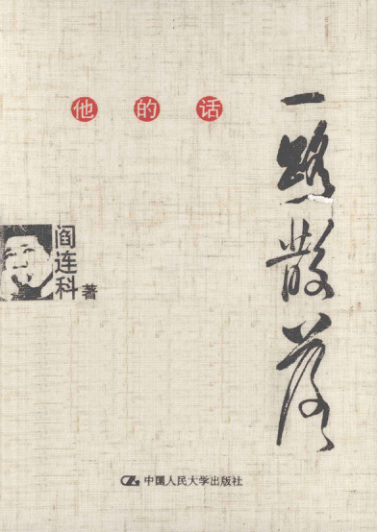 他的话一路散落
阎连科 著
中国人民大学出版社